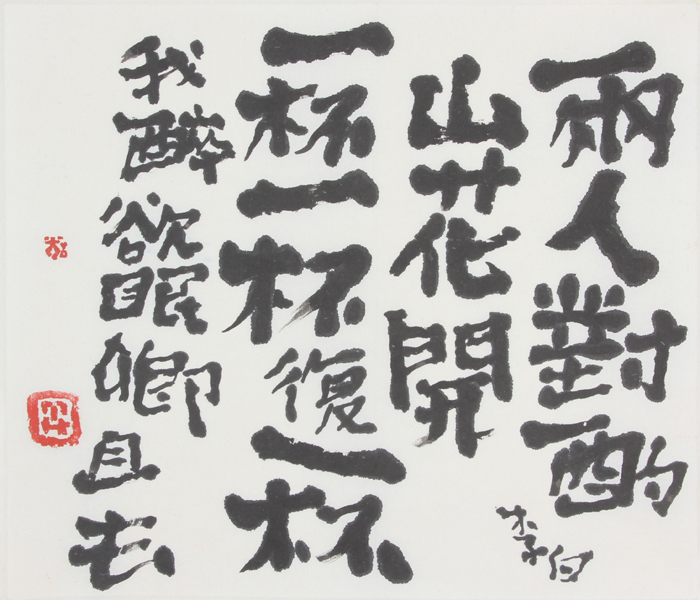 兩人對酌
山花開
一杯一杯復一杯
我醉欲眠卿且去
李白